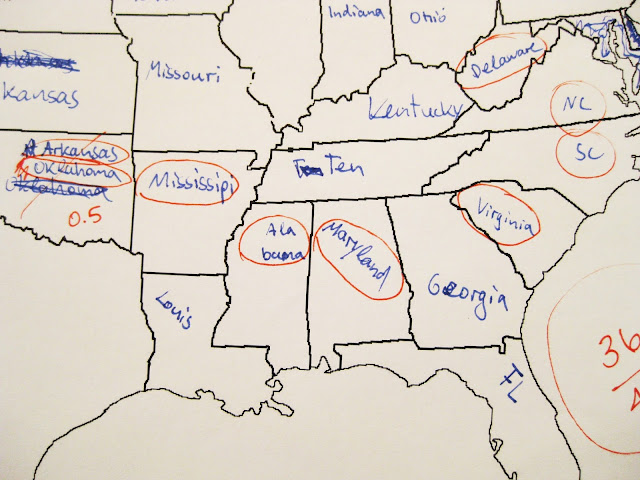 Indiana
Ohio
Delaware
Missouri
Kansas
Kentucky
NC
Arkansas
Oklahoma
Oklahoma
0.5
Mississipi
Ten
SC
Ala
bama
Maryland
Virginia
Georgia
Louis
FL
36